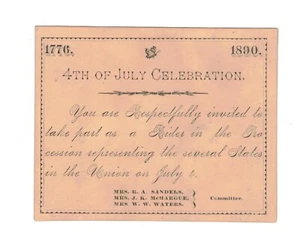 1776. 1890.
4TH OF JULY CELEBRATION.
You are Respectfully invited to
take part as a Rider in the Pro
cession representing the several States
in the Union on July
MRS. R. A. SANDELS,
MRS. J. K. McHARGUE, Committee.
MRS. W. W. WATERS.